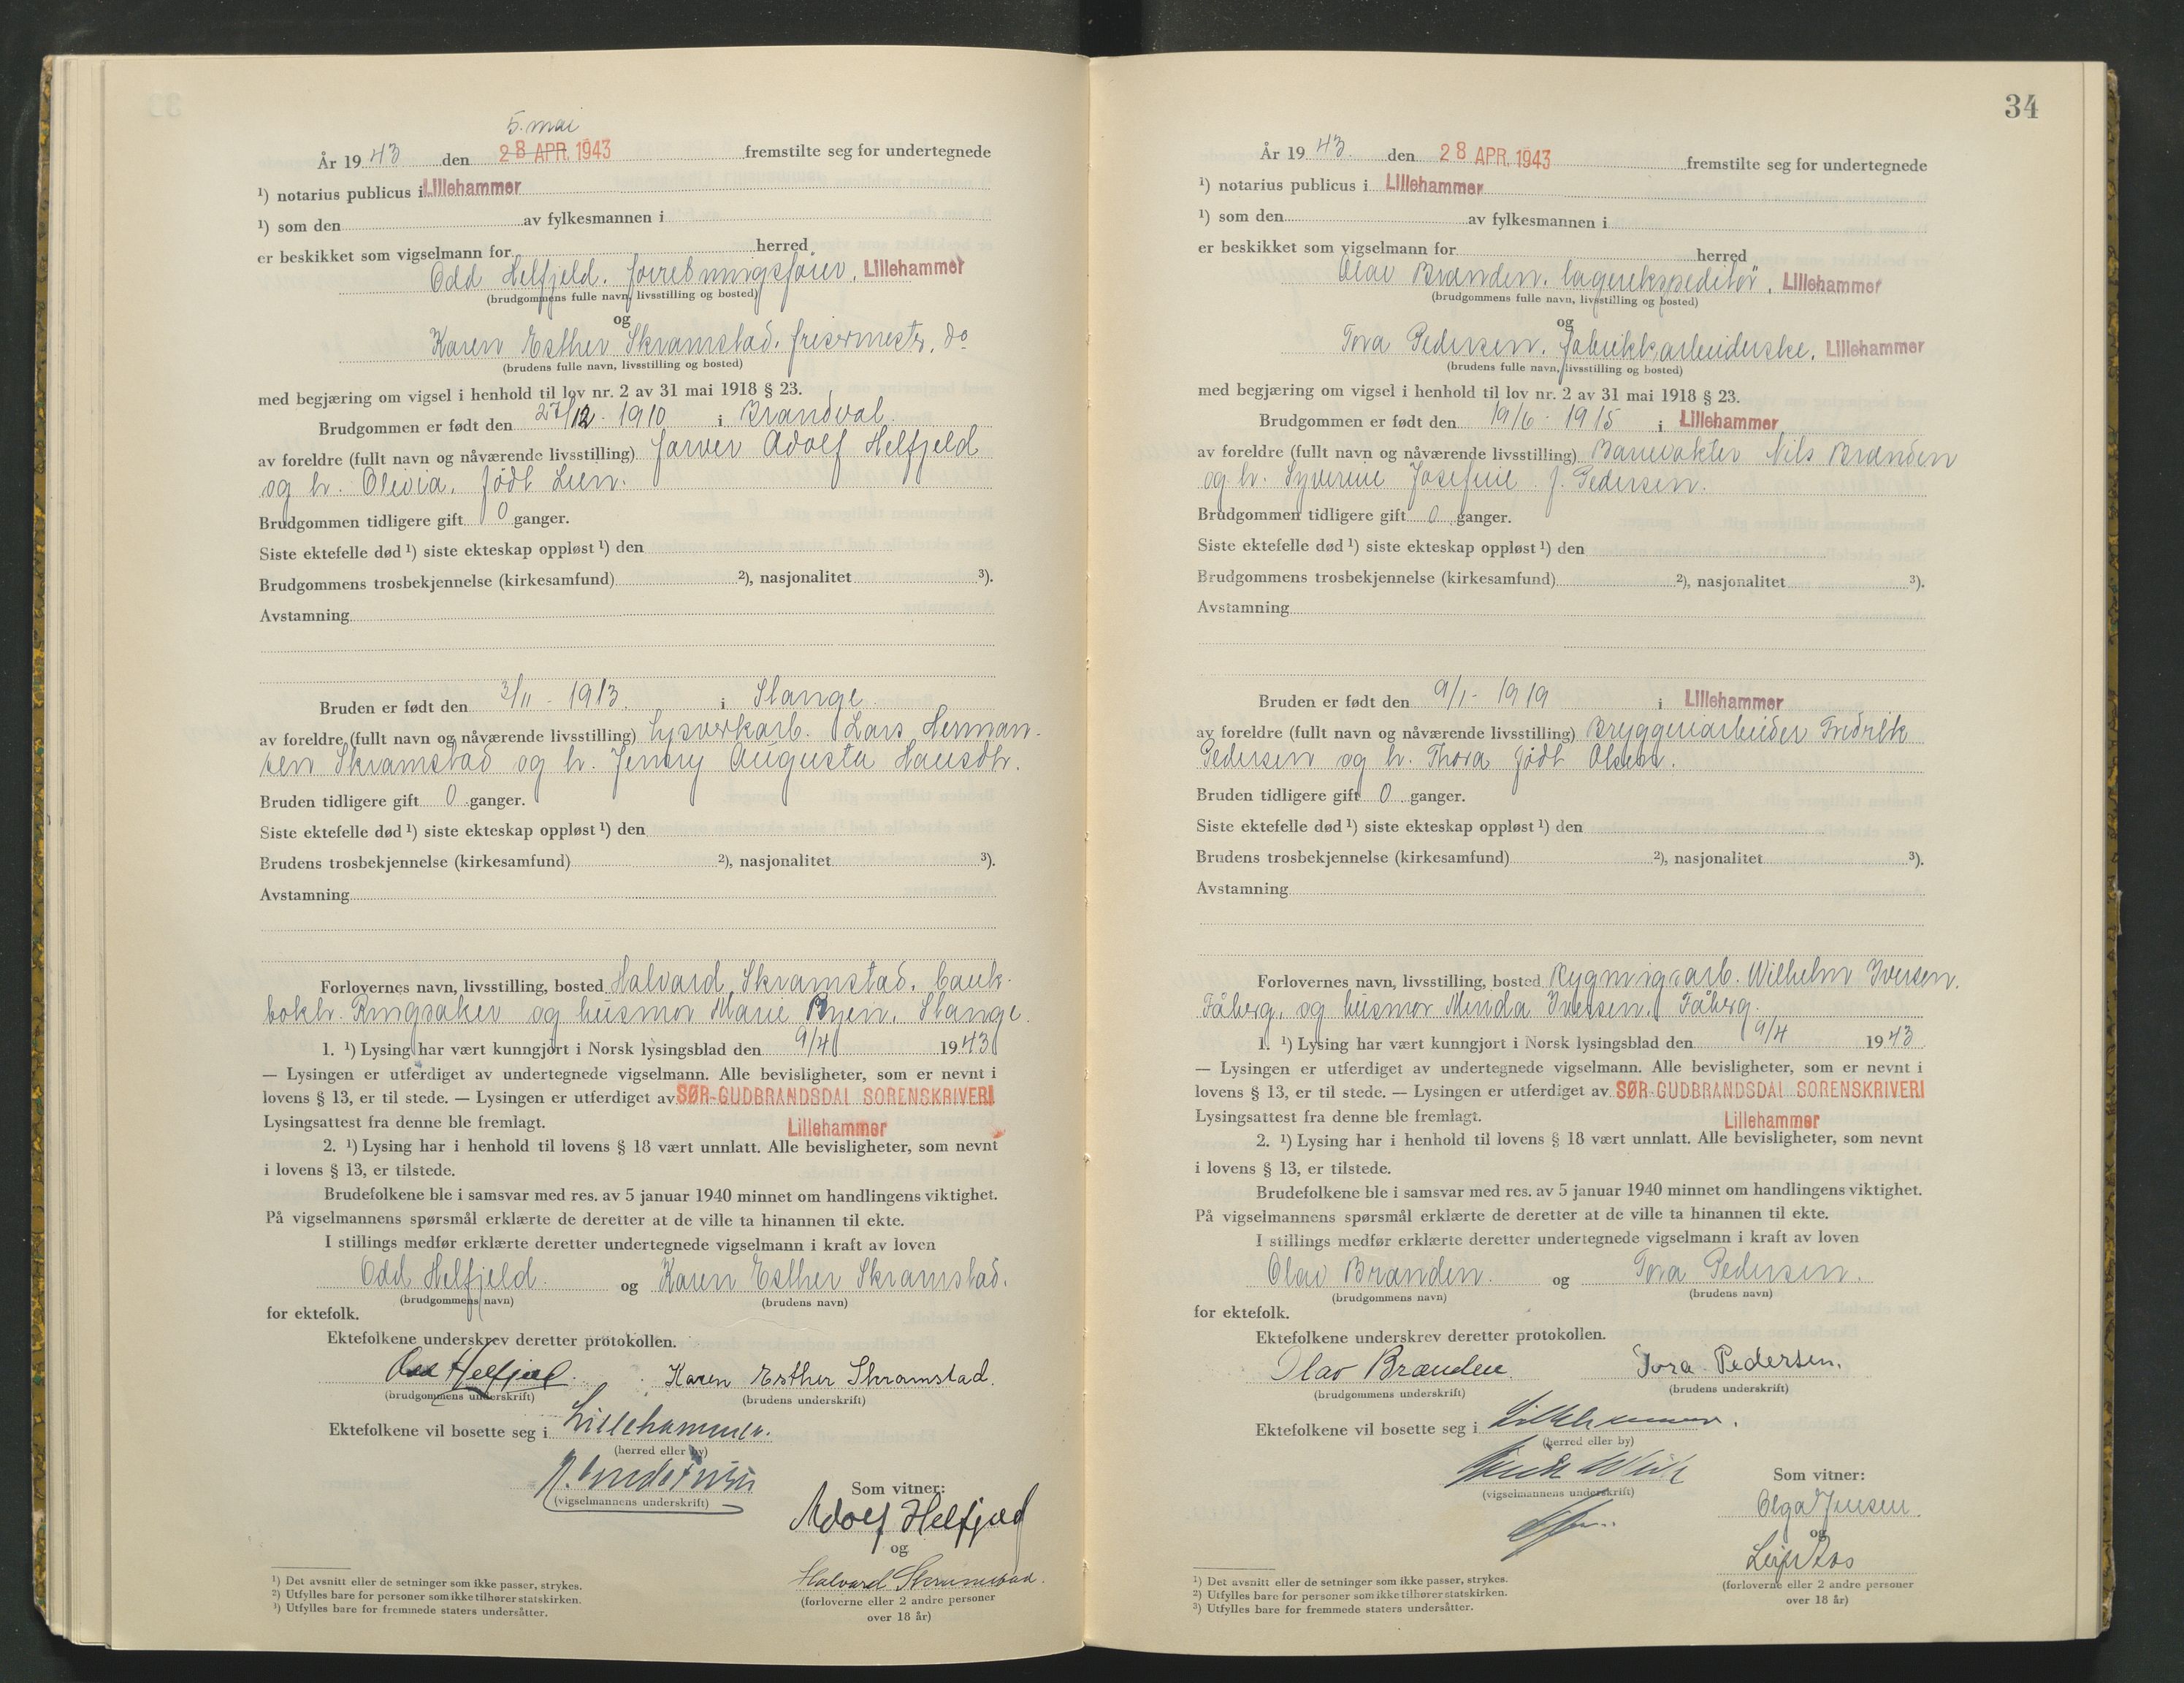 5. mai
År 19 43 den 28 APR. 1943 fremstilte seg for undertegnede
¹) notarius publicus i Lillehammer
¹) som den av fylkesmannen i
er beskikket som vigselmann for herred
Odd Helfjeld, forretningsfører, Lillehammer
(brudgommens fulle navn, livsstilling og bosted)
og
Karen Esther Skramstad, frisørmester, do
(brudens fulle navn, livsstilling og bosted)
med begjæring om vigsel i henhold til lov nr. 2 av 31 mai 1918 § 23.
Brudgommen er født den 27/12 - 1910 i Brandval
av foreldre (fullt navn og nåværende livsstilling) farver Adolf Helfjeld
og h. Olivia, født Lien.
Brudgommen tidligere gift 0 ganger.
Siste ektefelle død ¹) siste ekteskap oppløst ¹) den
Brudgommens trosbekjennelse (kirkesamfund) ²), nasjonalitet ³).
Avstamning
Bruden er født den 3/11 - 1913. i Stange
av foreldre (fullt navn og nåværende livsstilling) lysverkarb. Lars Herman-
sen Skramstad og h. Jenny Augusta Hansdtr.
Bruden tidligere gift 0 ganger.
Siste ektefelle død ¹) siste ekteskap oppløst ¹) den
Brudens trosbekjennelse (kirkesamfund) ²), nasjonalitet ³).
Avstamning
Forlovernes navn, livsstilling, bosted Halvard Skramstad, bank-
bokh. Ringsaker og husmor Marie Ryen, Stange.
1. ¹) Lysing har vært kunngjort i Norsk lysingsblad den 9/4 19 43
— Lysingen er utferdiget av undertegnede vigselmann. Alle bevisligheter, som er nevnt i
lovens § 13, er til stede. — Lysingen er utferdiget av SØR-GUDBRANDSDAL SORENSKRIVERI
Lysingsattest fra denne ble fremlagt. Lillehammer
2. ¹) Lysing har i henhold til lovens § 18 vært unnlatt. Alle bevisligheter, som nevnt
i lovens § 13, er tilstede.
Brudefolkene ble i samsvar med res. av 5 januar 1940 minnet om handlingens viktighet.
På vigselmannens spørsmål erklærte de deretter at de ville ta hinannen til ekte.
I stillings medfør erklærte deretter undertegnede vigselmann i kraft av loven
Odd Helfjeld. og Karen Esther Skramstad.
(brudgommens navn) (brudens navn)
for ektefolk.
Ektefolkene underskrev deretter protokollen.
Odd Helfjeld. Karen Esther Skramstad.
(brudgommens underskrift) (brudens underskrift)
Ektefolkene vil bosette seg i Lillehammer.
(herred eller by)
(vigselmannens underskrift)
Som vitner:
Adolf Helfjeld
og
Halvard Skramstad.
(forloverne eller 2 andre personer
over 18 år)
¹) Det avsnitt eller de setninger som ikke passer, strykes.
²) Utfylles bare for personer som ikke tilhører statskirken.
³) Utfylles bare for fremmede staters undersåtter.
34
År 19 43. den 28 APR. 1943 fremstilte seg for undertegnede
¹) notarius publicus i Lillehammer
¹) som den av fylkesmannen i
er beskikket som vigselmann for herred
Olav Brænden, lagerekspeditør, Lillehammer
(brudgommens fulle navn, livsstilling og bosted)
og
Tora Pedersen, fabrikkarbeiderske, Lillehammer
(brudens fulle navn, livsstilling og bosted)
med begjæring om vigsel i henhold til lov nr. 2 av 31 mai 1918 § 23.
Brudgommen er født den 19/6 - 1915 i Lillehammer
av foreldre (fullt navn og nåværende livsstilling) Banevakter Nils Brænden
og h. Syverine Josefine f. Pedersen.
Brudgommen tidligere gift 0 ganger.
Siste ektefelle død ¹) siste ekteskap oppløst ¹) den
Brudgommens trosbekjennelse (kirkesamfund) ²), nasjonalitet ³).
Avstamning
Bruden er født den 9/1 - 1919 i Lillehammer
av foreldre (fullt navn og nåværende livsstilling) Bryggeriarbeider Fredrik
Pedersen og h. Thora født Olsen.
Bruden tidligere gift 0 ganger.
Siste ektefelle død ¹) siste ekteskap oppløst ¹) den
Brudens trosbekjennelse (kirkesamfund) ²), nasjonalitet ³).
Avstamning
Forlovernes navn, livsstilling, bosted Bygningsarb. Wilhelm Iversen,
Fåberg, og husmor Minda Iversen, Fåberg.
1. ¹) Lysing har vært kunngjort i Norsk lysingsblad den 9/4 19 43
— Lysingen er utferdiget av undertegnede vigselmann. Alle bevisligheter, som er nevnt i
lovens § 13, er til stede. — Lysingen er utferdiget av SØR-GUDBRANDSDAL SORENSKRIVERI
Lysingsattest fra denne ble fremlagt. Lillehammer
2. ¹) Lysing har i henhold til lovens § 18 vært unnlatt. Alle bevisligheter, som nevnt
i lovens § 13, er tilstede.
Brudefolkene ble i samsvar med res. av 5 januar 1940 minnet om handlingens viktighet.
På vigselmannens spørsmål erklærte de deretter at de ville ta hinannen til ekte.
I stillings medfør erklærte deretter undertegnede vigselmann i kraft av loven
Olav Brænden. og Tora Pedersen.
(brudgommens navn) (brudens navn)
for ektefolk.
Ektefolkene underskrev deretter protokollen.
Olav Brænden. Tora Pedersen.
(brudgommens underskrift) (brudens underskrift)
Ektefolkene vil bosette seg i Lillehammer.
(herred eller by)
(vigselmannens underskrift)
Som vitner:
Olga Jensen.
og
Leif
(forloverne eller 2 andre personer
over 18 år)
¹) Det avsnitt eller de setninger som ikke passer, strykes.
²) Utfylles bare for personer som ikke tilhører statskirken.
³) Utfylles bare for fremmede staters undersåtter.